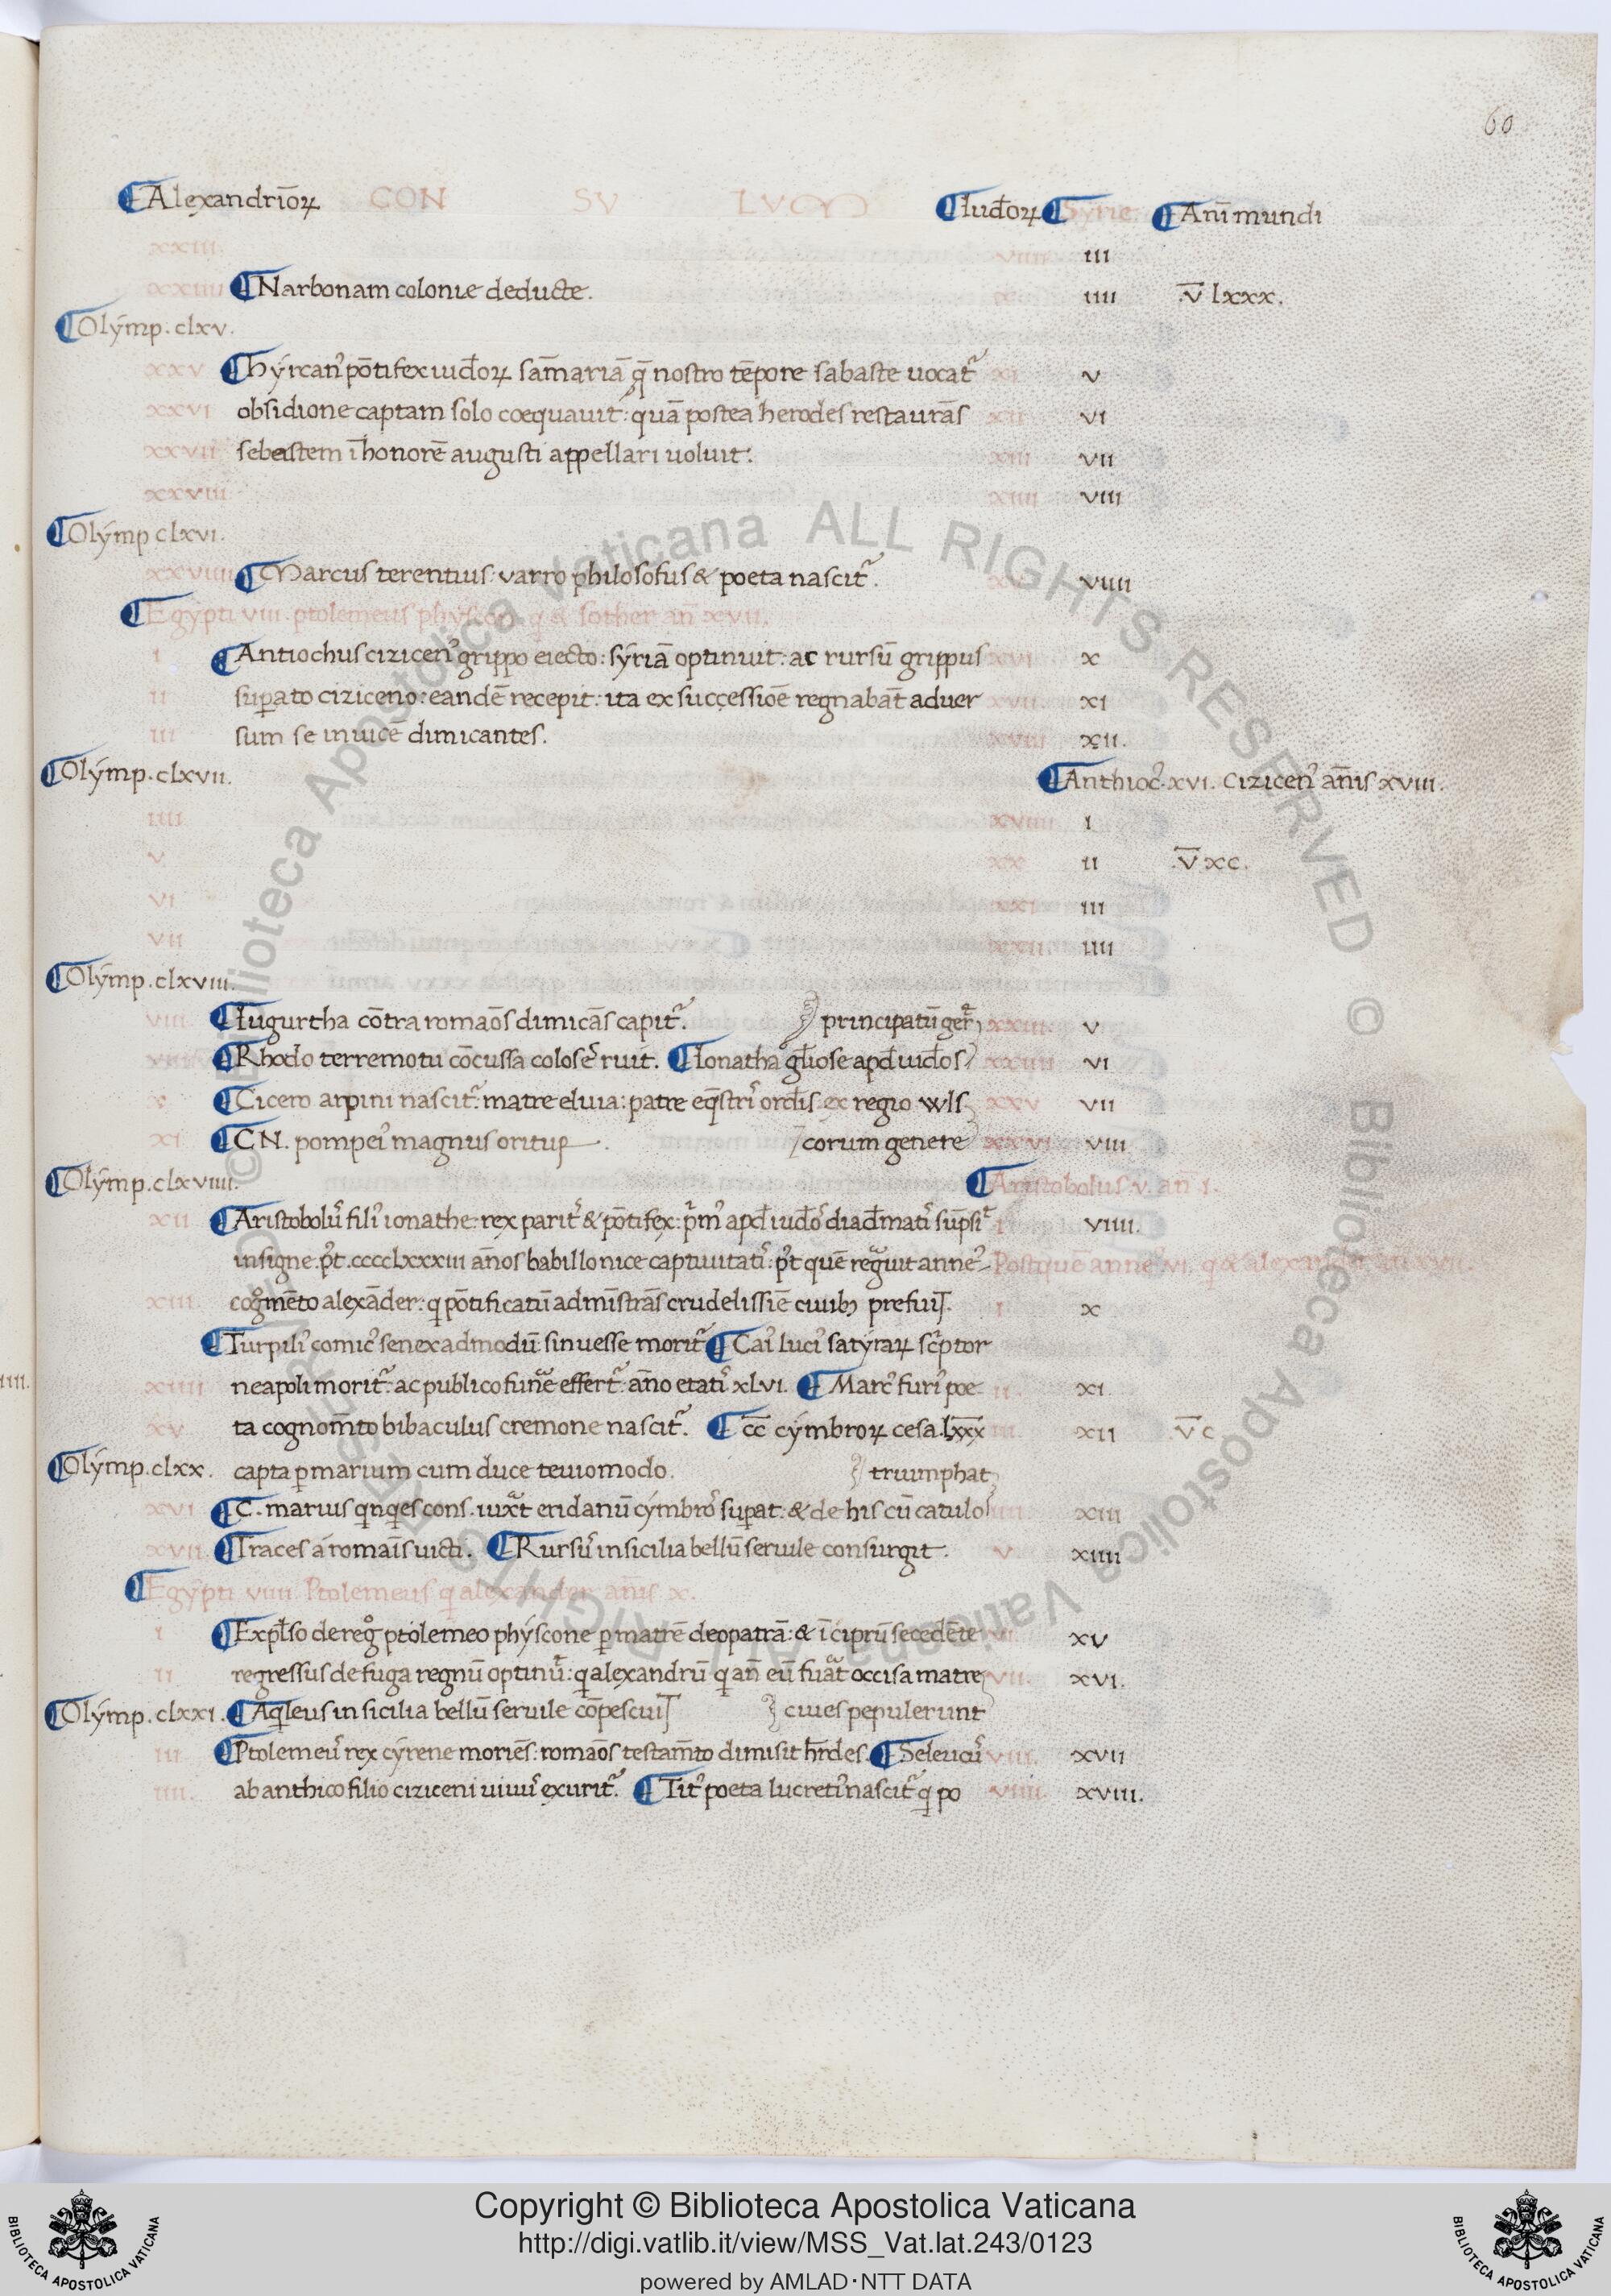 60
Alexandrīoꝝ CON SV LVM Iud̄oꝝ Syrie Anī mundi
xxiii. viiii iii
xxiiii Narbonam colonie deducte. x iiii .v̄ lxxx.
Olýmp. clxv.
xxv hýrcanꝰ pōtifex iud̄oꝝ sam̄ariā q̄ nostro tēpore sabaste uocat᷑ xi v
xxvi obsidione captam solo coequauit: quā postea herodes restaurās xii vi
xxvii sebastem ī honorē augusti appellari uoluit: xiii vii
xxviii xiiii viii
Olýmp clxvi.
xxviiii Marcus terentius: varro philosofus & poeta nascit᷑. xv viiii
Egýpti viii. ptolemeus phýscon q̄ & sother an̄ xvii.
i Antiochus cizicenꝰ grippo eiecto: sýriā optinuit: ac rursū grippus xvi x
ii suꝑato ciziceno: eandē recepit: ita ex successiōe regnabāt aduer xvii xi
iii sum se inuicē dimicantes. xviii xii.
Olýmp. clxvii. Anthiocꝰ. xvi. cizicenꝰ an̄is xviii.
iiii xviiii i
v xx ii .v̄ xc.
vi xxi iii
vii xxii iiii
Olýmp. clxviii.
viii Iugurtha cōtra romaōs dimicās capit᷑. principatū ger̄ xxiii. v
viiii Rhodo terremotu cōcussa colosꝰ ruit. Ionatha gl̄iose apd̄ iud̄os xxiiii vi
x Cicero arpini nascit᷑: matre eluia: patre eq̄stri ord̄is: ex regio wls xxv vii
xi CN. pompeiꝰ magnus oritur. corum genere xxvi viii
Olýmp. clxviiii. Aristobolus. v. an̄ i.
xii Aristobolꝰ filiꝰ ionathe: rex parit᷑ & pōtifex: p̄mꝰ apd̄ iud̄os diad̄matis sūpsit i viiii.
insigne. p̄t. cccclxxxiii an̄os babillonice captiuitatis: p̄t quē regͣuit anneꝰ Post quē anneꝰ. vi. q & alexander an̄ xxvii.
xiii. cogͦmēto alexāder: q pōtificatū admīstrās crudelissīe ciuibꝫ prefuit. i x
Turpiliꝰ comicꝰ senex admodū: sinuesse morit᷑ Caiꝰ luciꝰ satýraꝝ sc̄ptor
xiiii neapoli morit᷑: ac publico funͣe effert᷑: an̄o etatis xlvi. Marcꝰ furiꝰ poe ii xi.
xv ta cognom̄to bibaculus cremone nascit᷑. c̄c̄ cýmbroꝝ cesa. lx̄x̄x̄ iii. xii .v̄ c
Olýmp. clxx. capta ꝑ marium cum duce teuiomodo. triumphat
xvi C. marius qnqes cons. iuxͣt eridanū cýmbros suꝑat: & de his cū catulo iiii. xiii
xvii Traces á romaīs uicti. Rursꝰ in sicilia bellū seruile consurgit. v. xiiii
Egýpti viiii. Ptolemeus q alexander an̄is x.
i Expl̄so de regͦ ptolemeo phýscone ꝑ matrē cleopatrā: & ī ciprū secedēte vi xv
ii regressus de fuga regnū optinūt: q alexandrū q an̄ eū fuͣat occisa matre vii. xvi.
Olýmp. clxxi. Aqleus in sicilia bellū seruile cōpescuit ciues pepulerunt
iii Ptolemeꝰ rex cýrene moriēs: romaōs testam̄to dimisit hr̄des. Seleucꝰ viii. xvii
iiii. ab anthico filio ciziceni uiuꝰ exurit᷑. Titꝰ poeta lucretiꝰ nascit᷑ q po viiii. xviii.
iiii.
© Biblioteca Apostolica Vaticana ALL RIGHTS RESERVED © Biblioteca Apostolica Vaticana ALL RIGHTS RESERVED
Copyright © Biblioteca Apostolica Vaticana
http://digi.vatlib.it/view/MSS_Vat.lat.243/0123
powered by AMLAD·NTT DATA
BIBLIOTECA APOSTOLICA VATICANA
BIBLIOTECA APOSTOLICA VATICANA